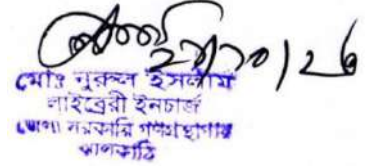 মোঃ নুরুল ইসলাম
লাইব্রেরী ইনচার্জ
জেলা সরকারি গণগ্রন্থাগার
ঝালকাঠি